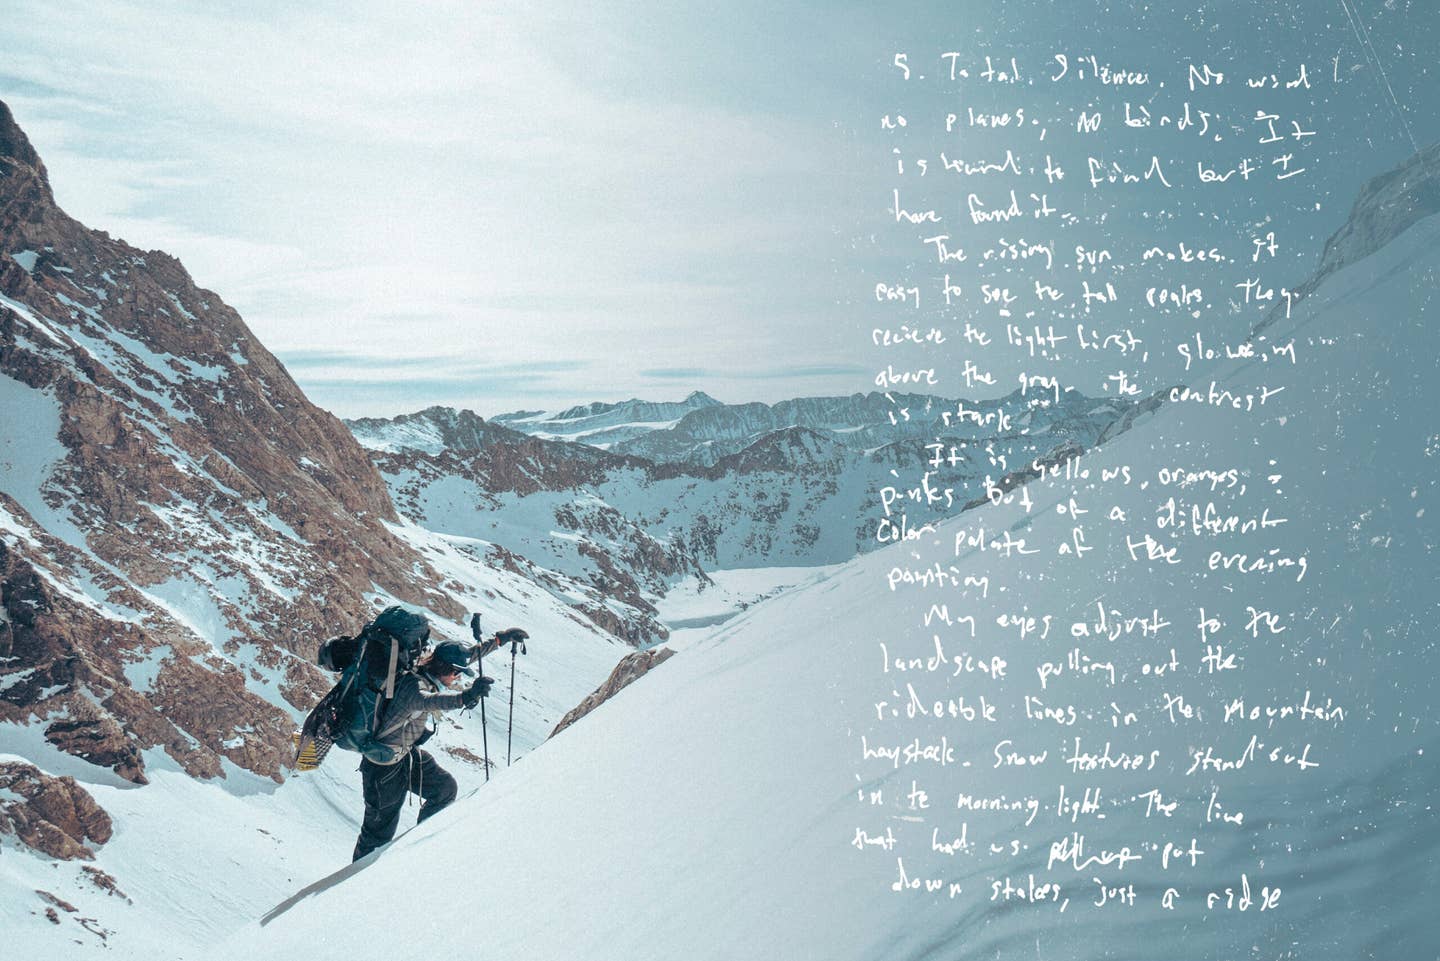 S. Total. Silence. No wind
no planes, no birds. It
is hard to find but I
have found it.
The rising sun makes it
easy to see the tall peaks. They
recieve the light first, glowing
above the gray. The contrast
is stark.
It is yellows, oranges,
pinks but of a different
color palate of the evening
painting.
My eyes adjust to the
landscape pulling out the
rideable lines in the mountain
haystack. Snow textures stand out
in te morning light. The line
that had us put
down stakes, just a ridge